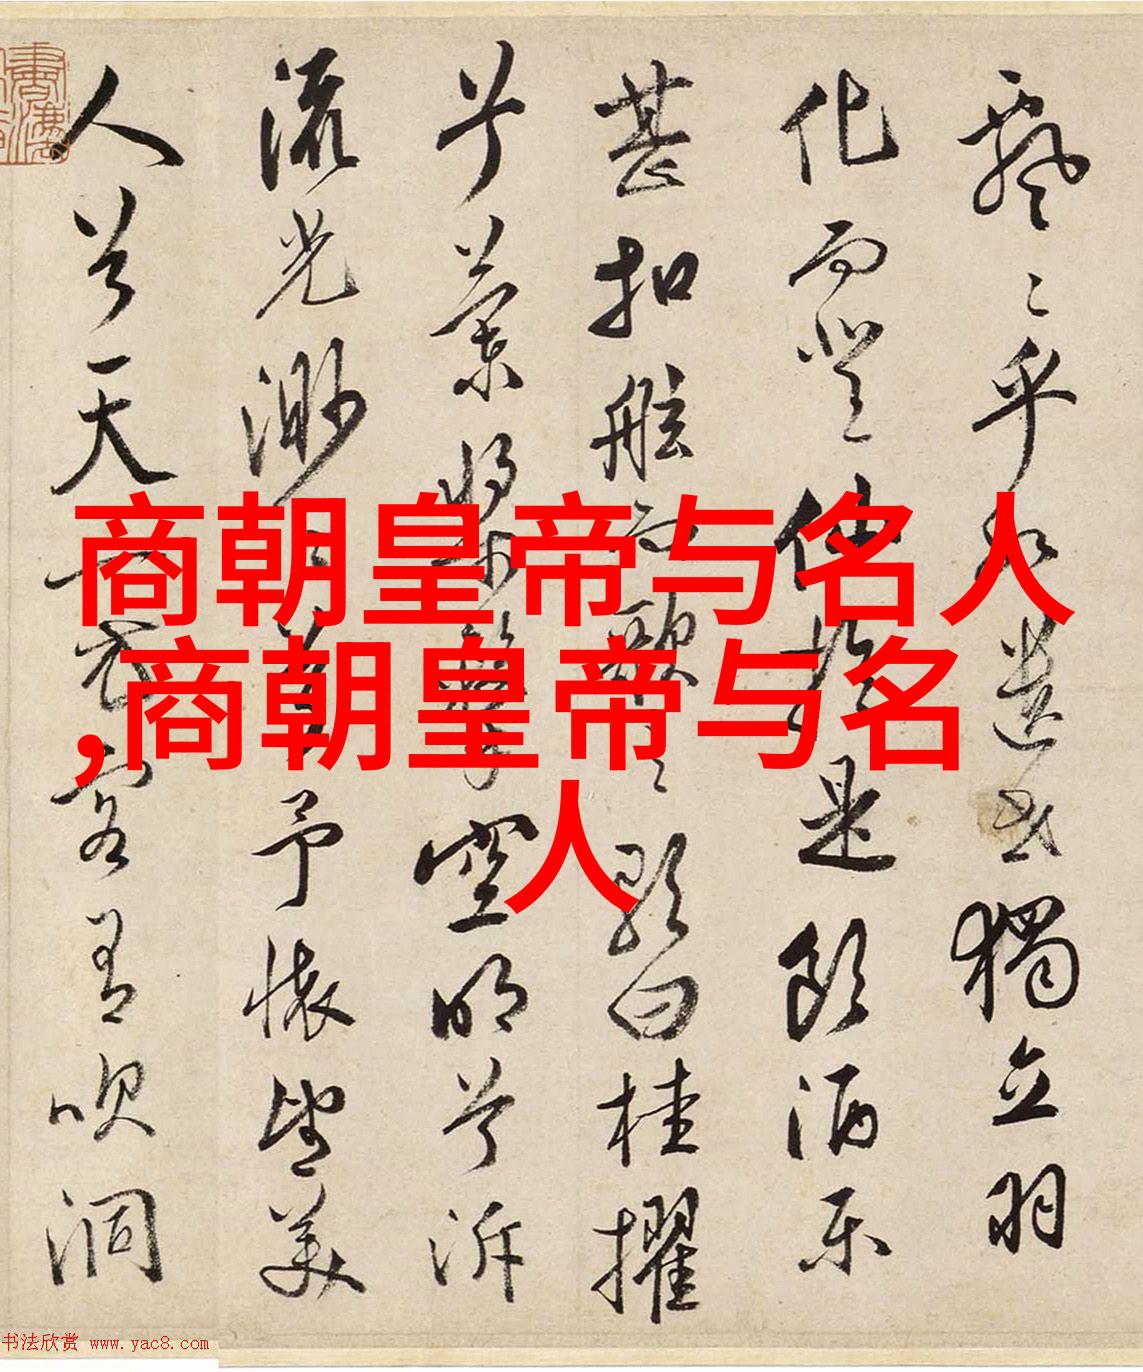 飄々乎如遺世獨立羽
化而登仙於是飲酒樂
甚扣舷而歌之歌曰桂擢
兮蘭槳兮擊空明兮泝
流光渺々兮予懷望美
人兮天一方客有吹洞
商朝皇帝与名人
,商朝皇帝与名
人
书法欣赏 www.yac8.com